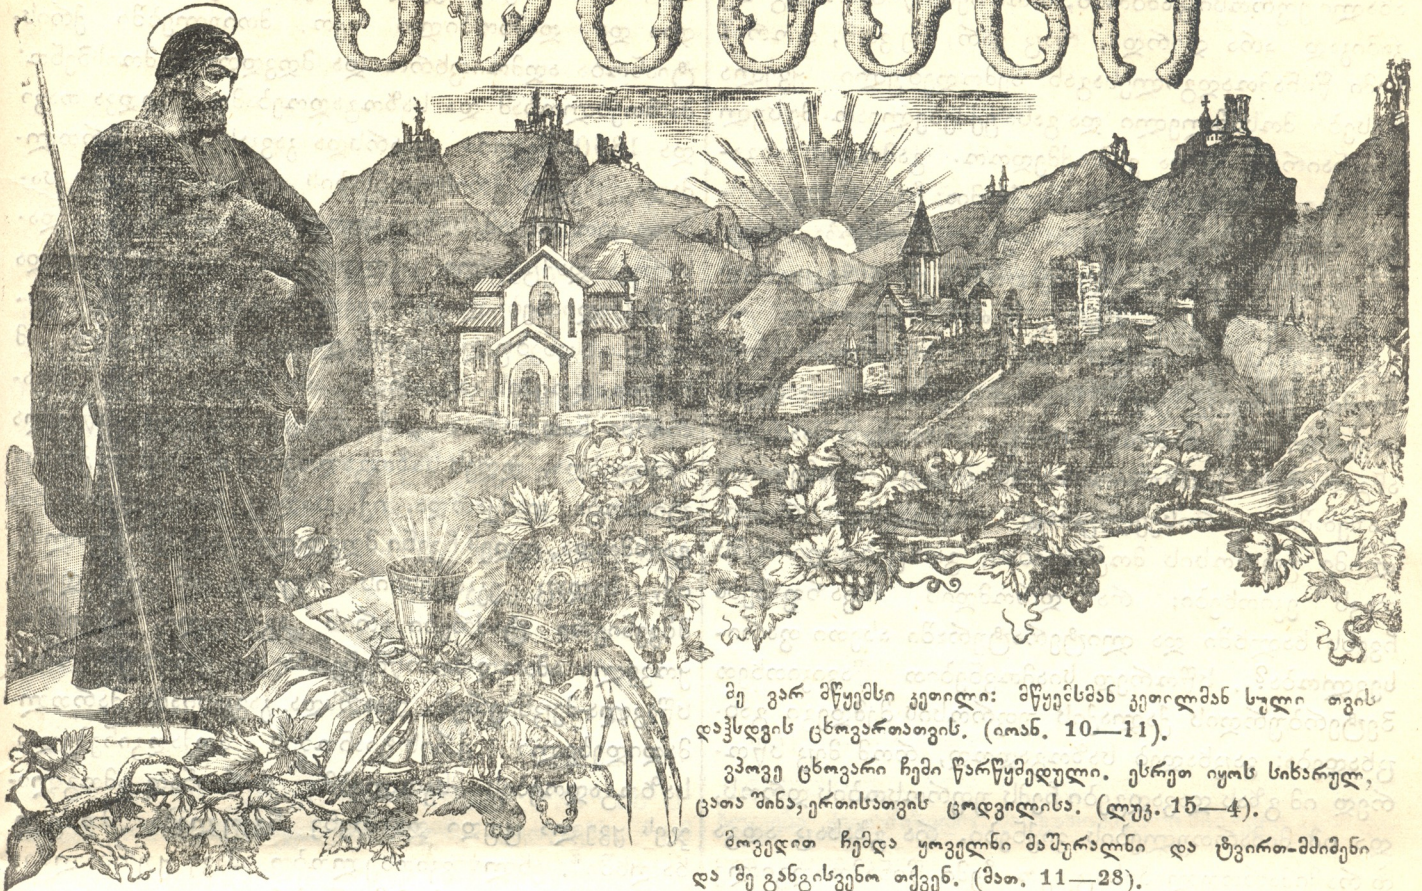 მე ვარ მწყემსი კეთილი: მწყემსმან კეთილმან სული თვის
დაჰსდვის ცხოვართათვის. (იოან. 10—11).
ვპოვე ცხოვარი ჩემი წარწყმედული. ესრეთ იყოს სიხარულ,
ცათა შინა, ერთისათვის ცოდვილისა. (ლუკ. 15—4).
მოვედით ჩემდა ყოველნი მაშურალნი და ტვირთ-მძიმენი
და მე განგისვენო თქვენ. (მათ. 11—28).